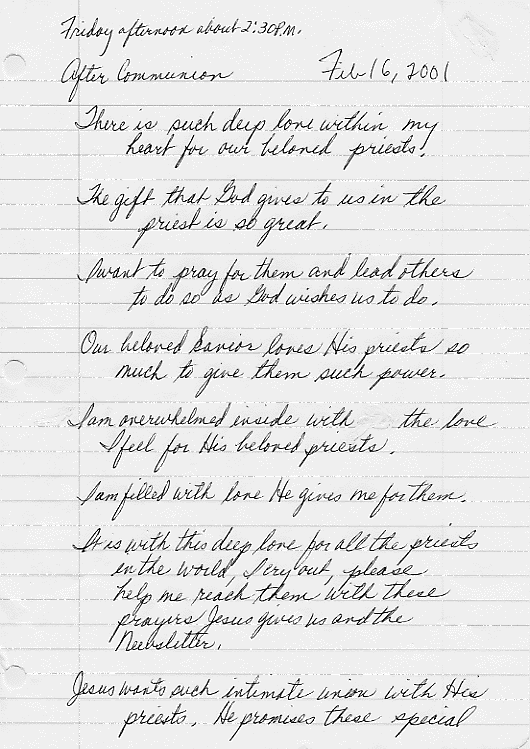 Friday afternoon about 2:30P.M.
After Communion Feb 16, 2001
There is such deep love within my
heart for our beloved priests!
The gift that God gives to us in the
priest is so great.
I want to pray for them and lead others
to do so as God wishes us to do.
Our beloved Savior loves His priests so
much to give them such power.
I am overwhelmed inside with the love
I feel for His beloved priests.
I am filled with love He gives me for them.
It is with this deep love for all the priests
in the world, I cry out, please
help me reach them with these
prayers Jesus gives us and the
Newsletter.
Jesus wants such intimate union with His
priests. He promises these special